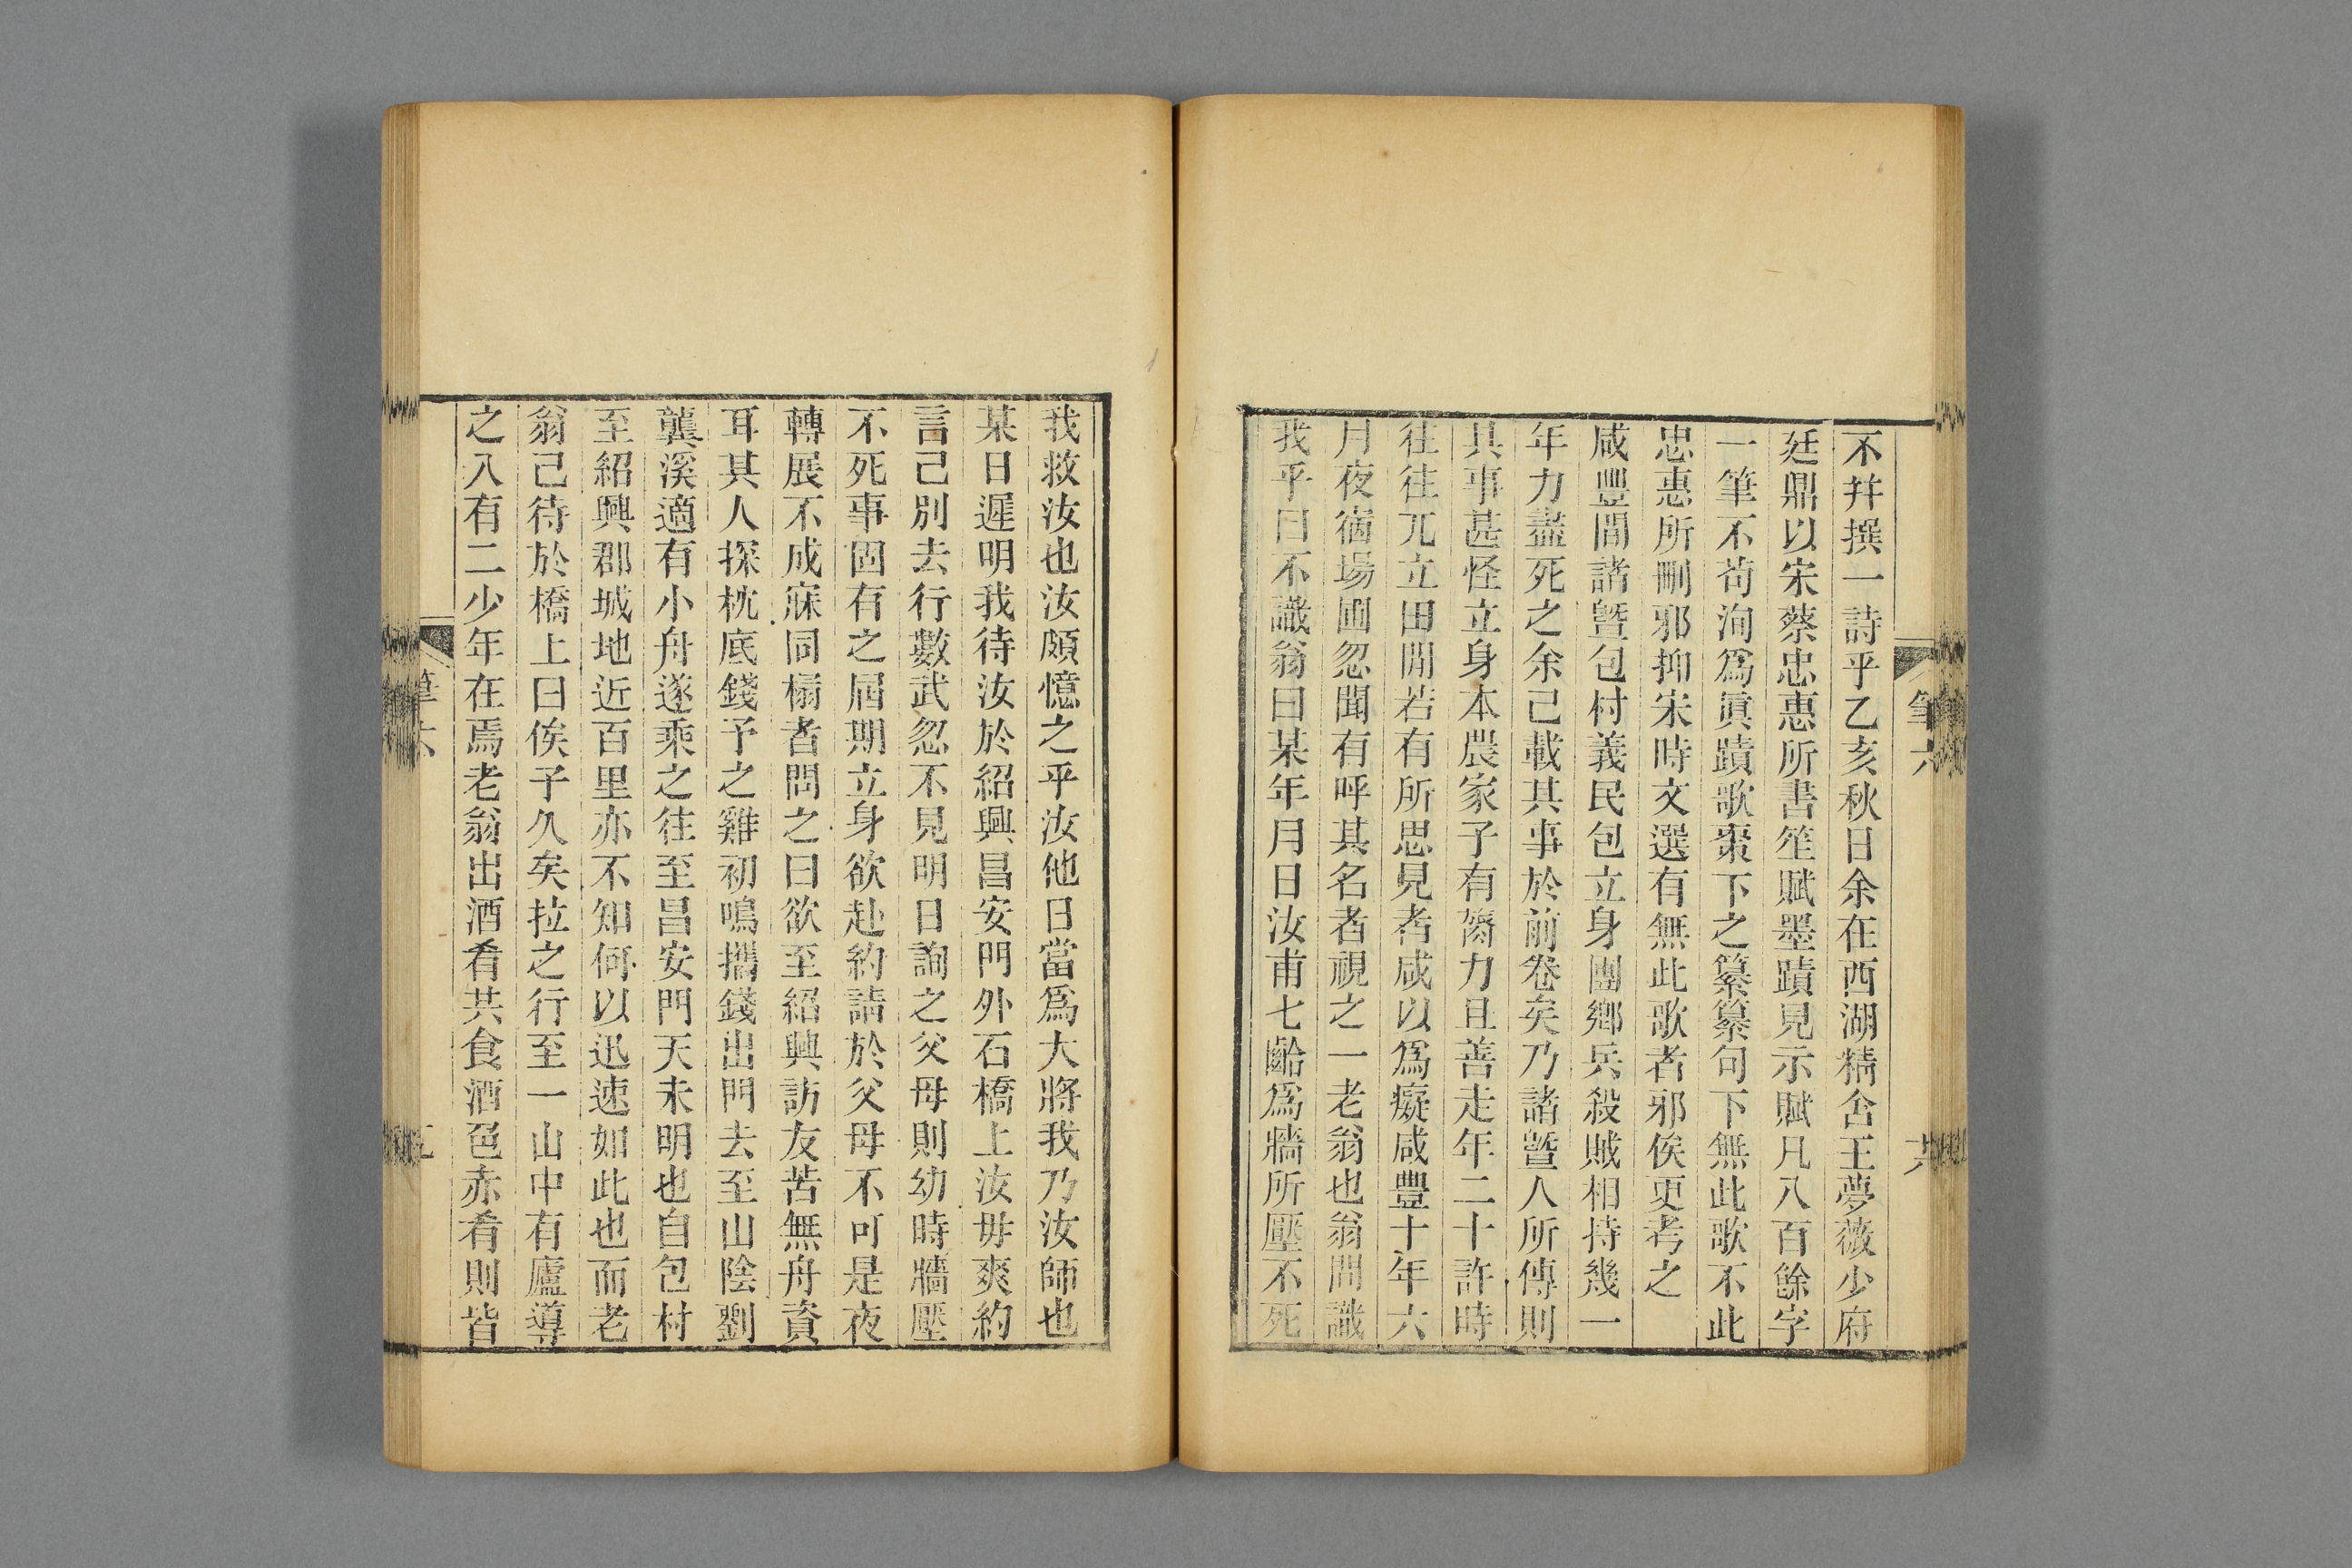 不幷撰一詩乎乙亥秋日余在西湖精舍王夢薇少府
廷鼎以宋蔡忠惠所書笙賦墨蹟見示賦凡八百餘字
一筆不苟洵爲眞蹟歌棗下之纂纂句下無此歌不此
忠惠所刪邪抑宋時文選有無此歌者邪俟更考之
咸豐間諸曁包村義民包立身團鄉兵殺賊相持幾一
年力盡死之余己載其事於前卷矣乃諸曁人所傳則
其事甚怪立身本農家子有膂力且善走年二十許時
往往兀立田閒若有所思見者咸以爲癡咸豐十年六
月夜宿場圃忽聞有呼其名者視之一老翁也翁問識
我乎曰不識翁曰某年月日汝甫七齡爲牆所壓不死
筆六
我救汝也汝頗憶之乎汝他日當爲大將我乃汝師也
某日遲明我待汝於紹興昌安門外石橋上汝毋爽約
言己別去行數武忽不見明日詢之父母則幼時牆壓
不死事固有之屆期立身欲赴約請於父母不可是夜
轉展不成寐同榻者問之曰欲至紹興訪友苦無舟資
耳其人探枕底錢予之雞初鳴攜錢出門去至山陰劉
龔溪適有小舟遂乘之往至昌安門天未明也自包村
至紹興郡城地近百里亦不知何以迅速如此也而老
翁己待於橋上曰俟子久矣拉之行至一山中有廬導
之入有二少年在焉老翁出酒肴共食酒色赤肴則皆
筆六